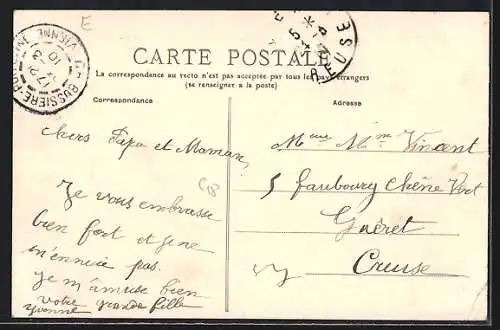 E
BUSSIÈRE-POITEVINE
Hte VIENNE
CREUSE
CARTE POSTALE
La correspondance au recto n'est pas acceptée par tous les pays étrangers
(se renseigner à la poste)
Correspondance
Adresse
Chers Papa et Maman,
Je vous embrasse
bien fort et je ne
m'ennuie pas.
Je m'amuse bien
votre grande fille
Yvonne
CB
Mme Vincent
5 faubourg Chêne Vert
Guéret
Creuse